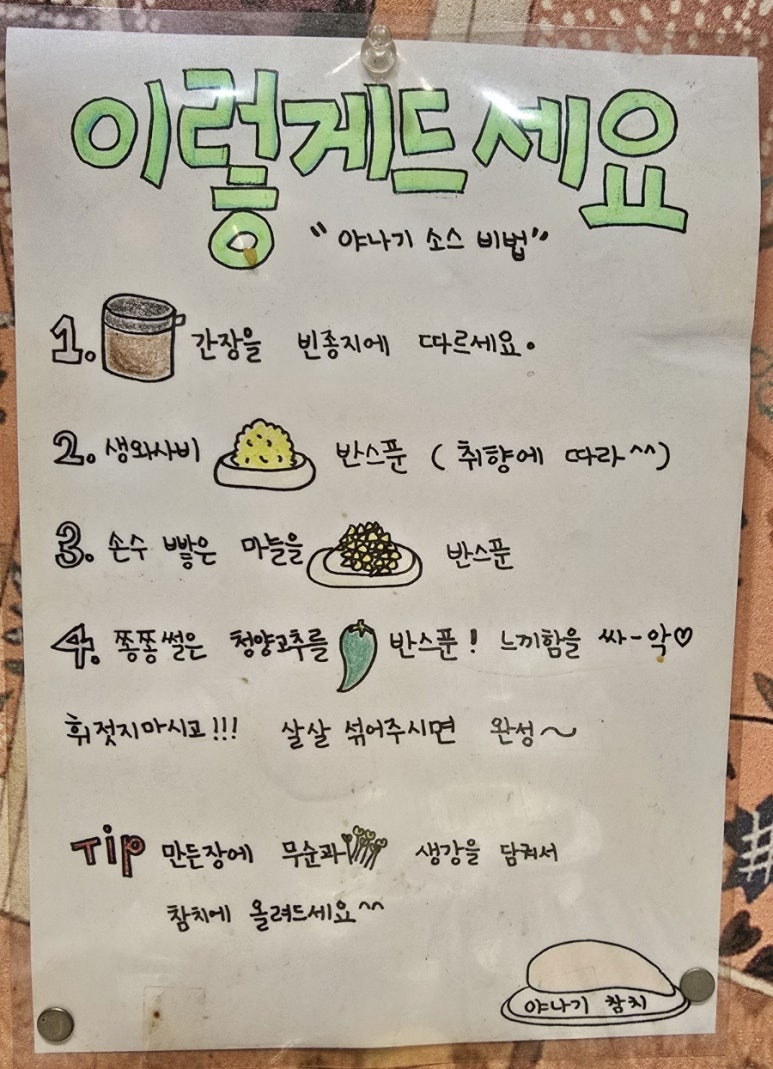 이렇게드세요
"야나기 소스 비법"
1. 간장을 빈종지에 따르세요.
2. 생와사비 반스푼 ( 취향에 따라^^)
3. 손수 빻은 마늘을 반스푼
4. 쫑쫑썰은 청양고추를 반스푼! 느끼함을 싸-악♡
휘젓지마시고!!! 살살 섞어주시면 완성~
Tip 만든장에 무순과 생강을 담궈서
참치에 올려드세요^^
야나기 참치